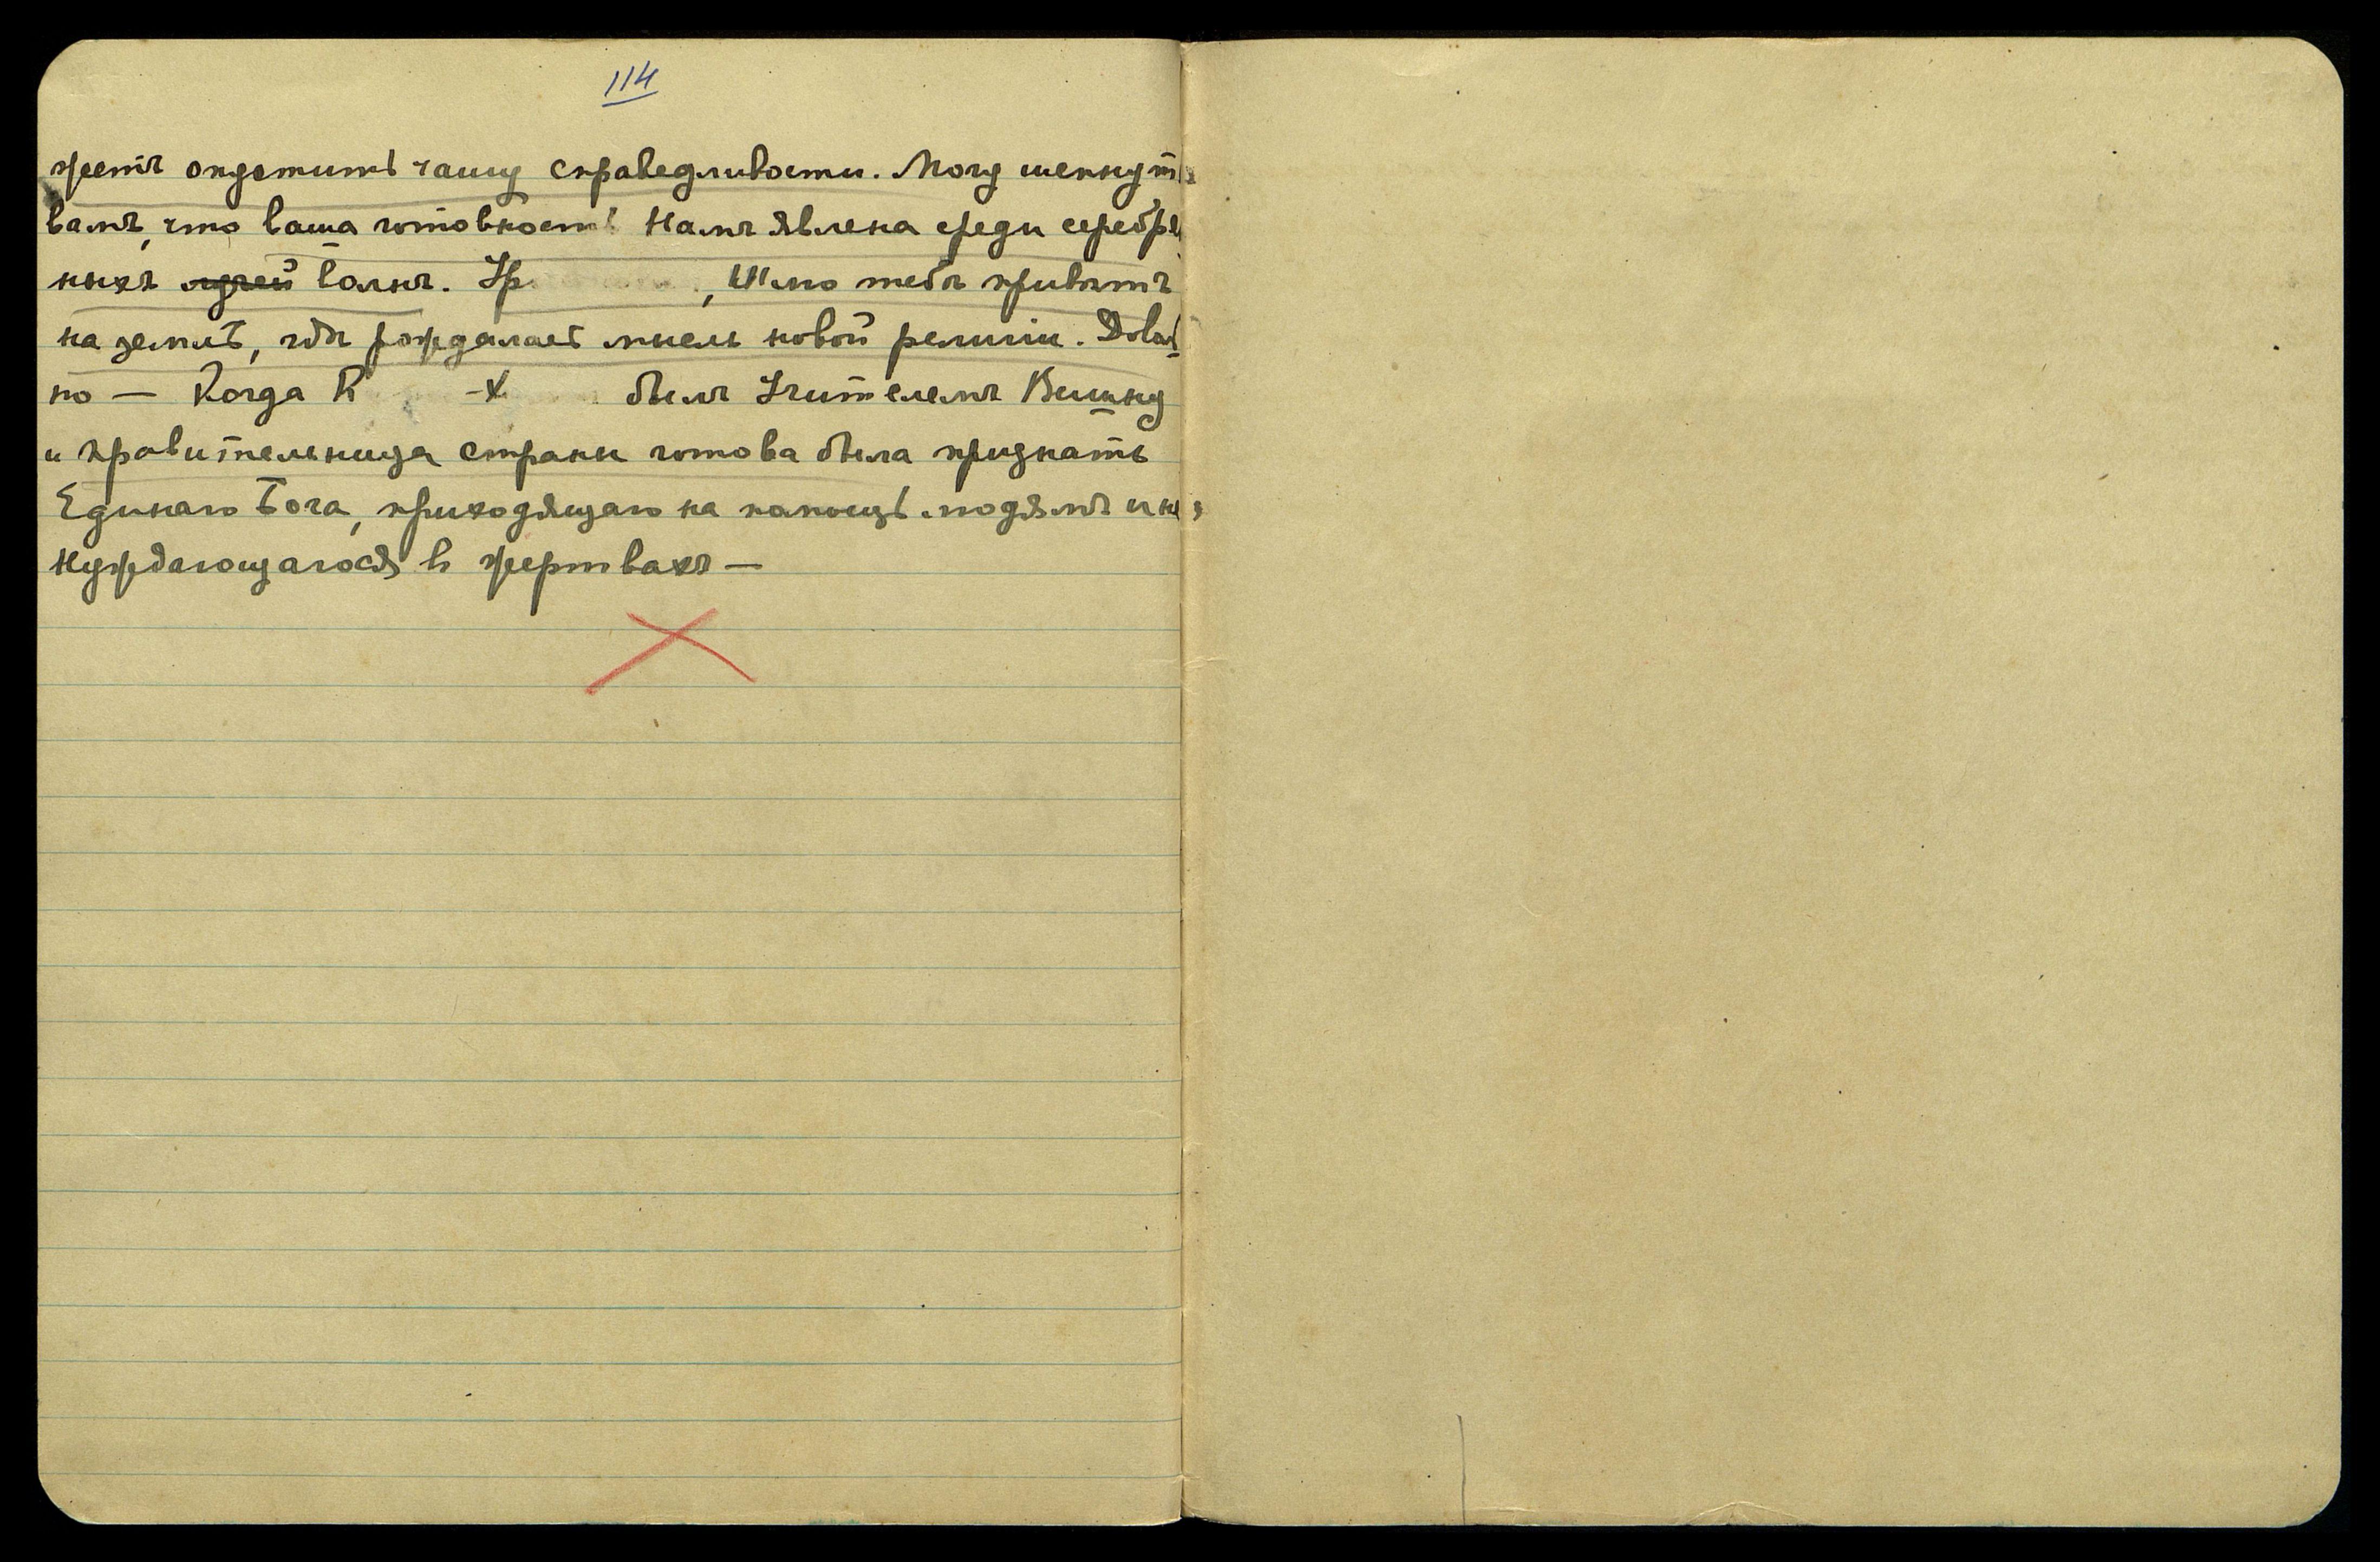 114
жетъ опустить чашу справедливости. Могу шепнуть
вамъ, что ваша готовность Намъ явлена среди серебря
ныхъ лучей волнъ. Ур , Шлю тебѣ привѣтъ
на землѣ, гдѣ рождалась мысль новой религіи. Доволь
но — Когда К -Х былъ Учителемъ Вишну
и правительница страны готова была признать
Единаго Бога, приходящаго на помощь людямъ и не
нуждающагося в жертвахъ —